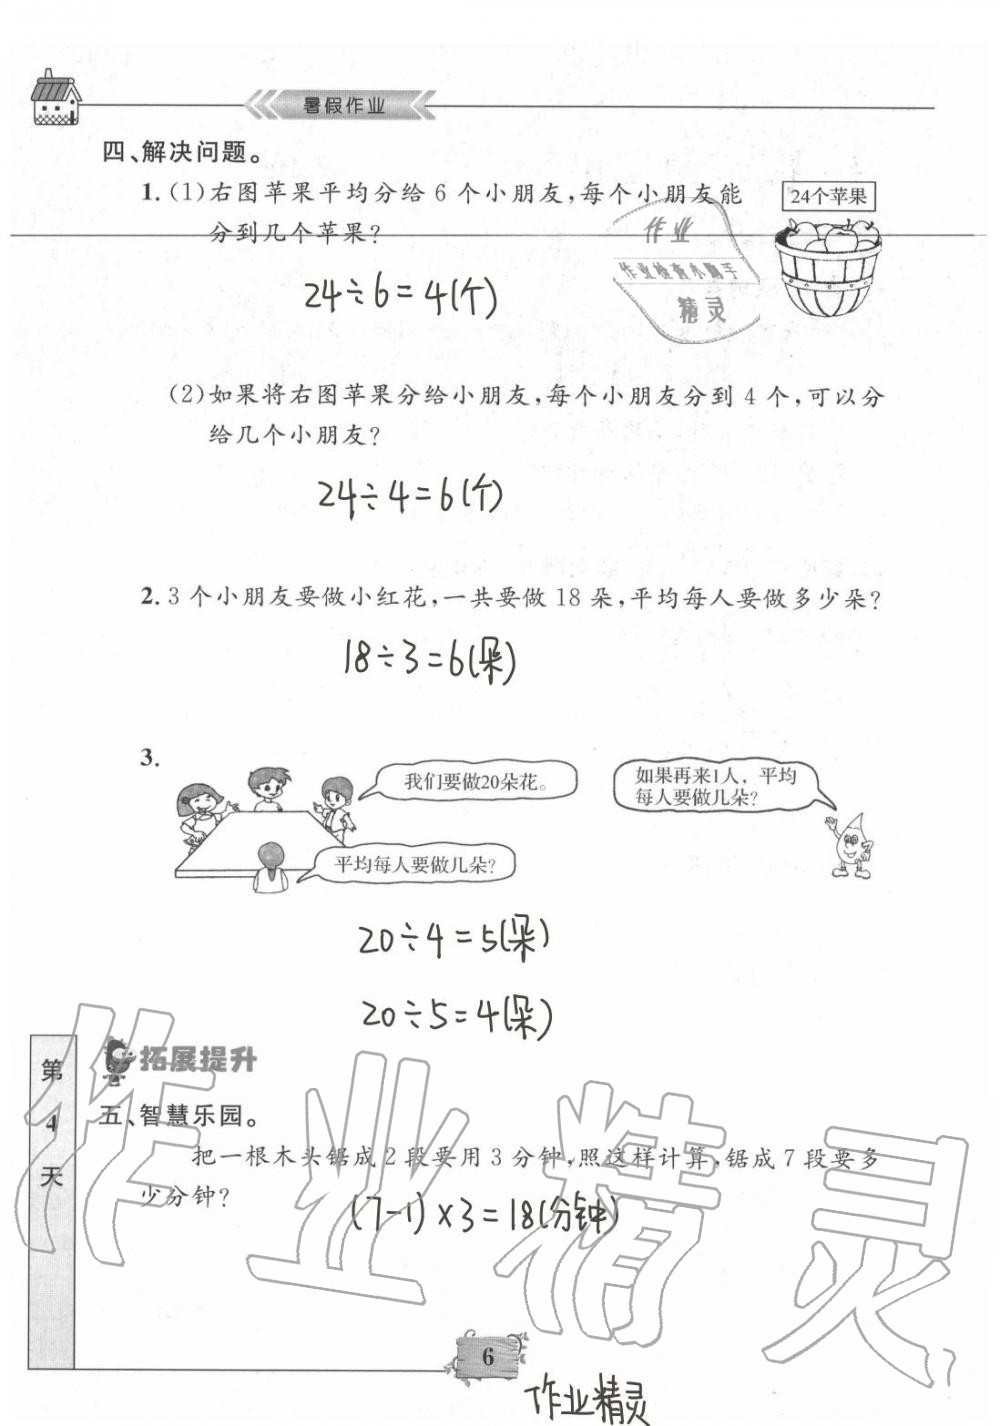 暑假作业
四、解决问题。
1.(1)右图苹果平均分给6个小朋友,每个小朋友能
分到几个苹果?
24个苹果
作业
作业检查小助手
精灵
24÷6=4(个)
(2)如果将右图苹果分给小朋友,每个小朋友分到4个,可以分
给几个小朋友?
24÷4=6(个)
2.3个小朋友要做小红花,一共要做18朵,平均每人要做多少朵?
18÷3=6(朵)
3.
我们要做20朵花。
如果再来1人，平均
每人要做几朵?
平均每人要做几朵?
20÷4=5(朵)
20÷5=4(朵)
第
4
天
拓展提升
五、智慧乐园。
把一根木头锯成2段要用3分钟,照这样计算,锯成7段要多
少分钟?
(7-1)×3=18(分钟)
作业精灵
6
作业精灵